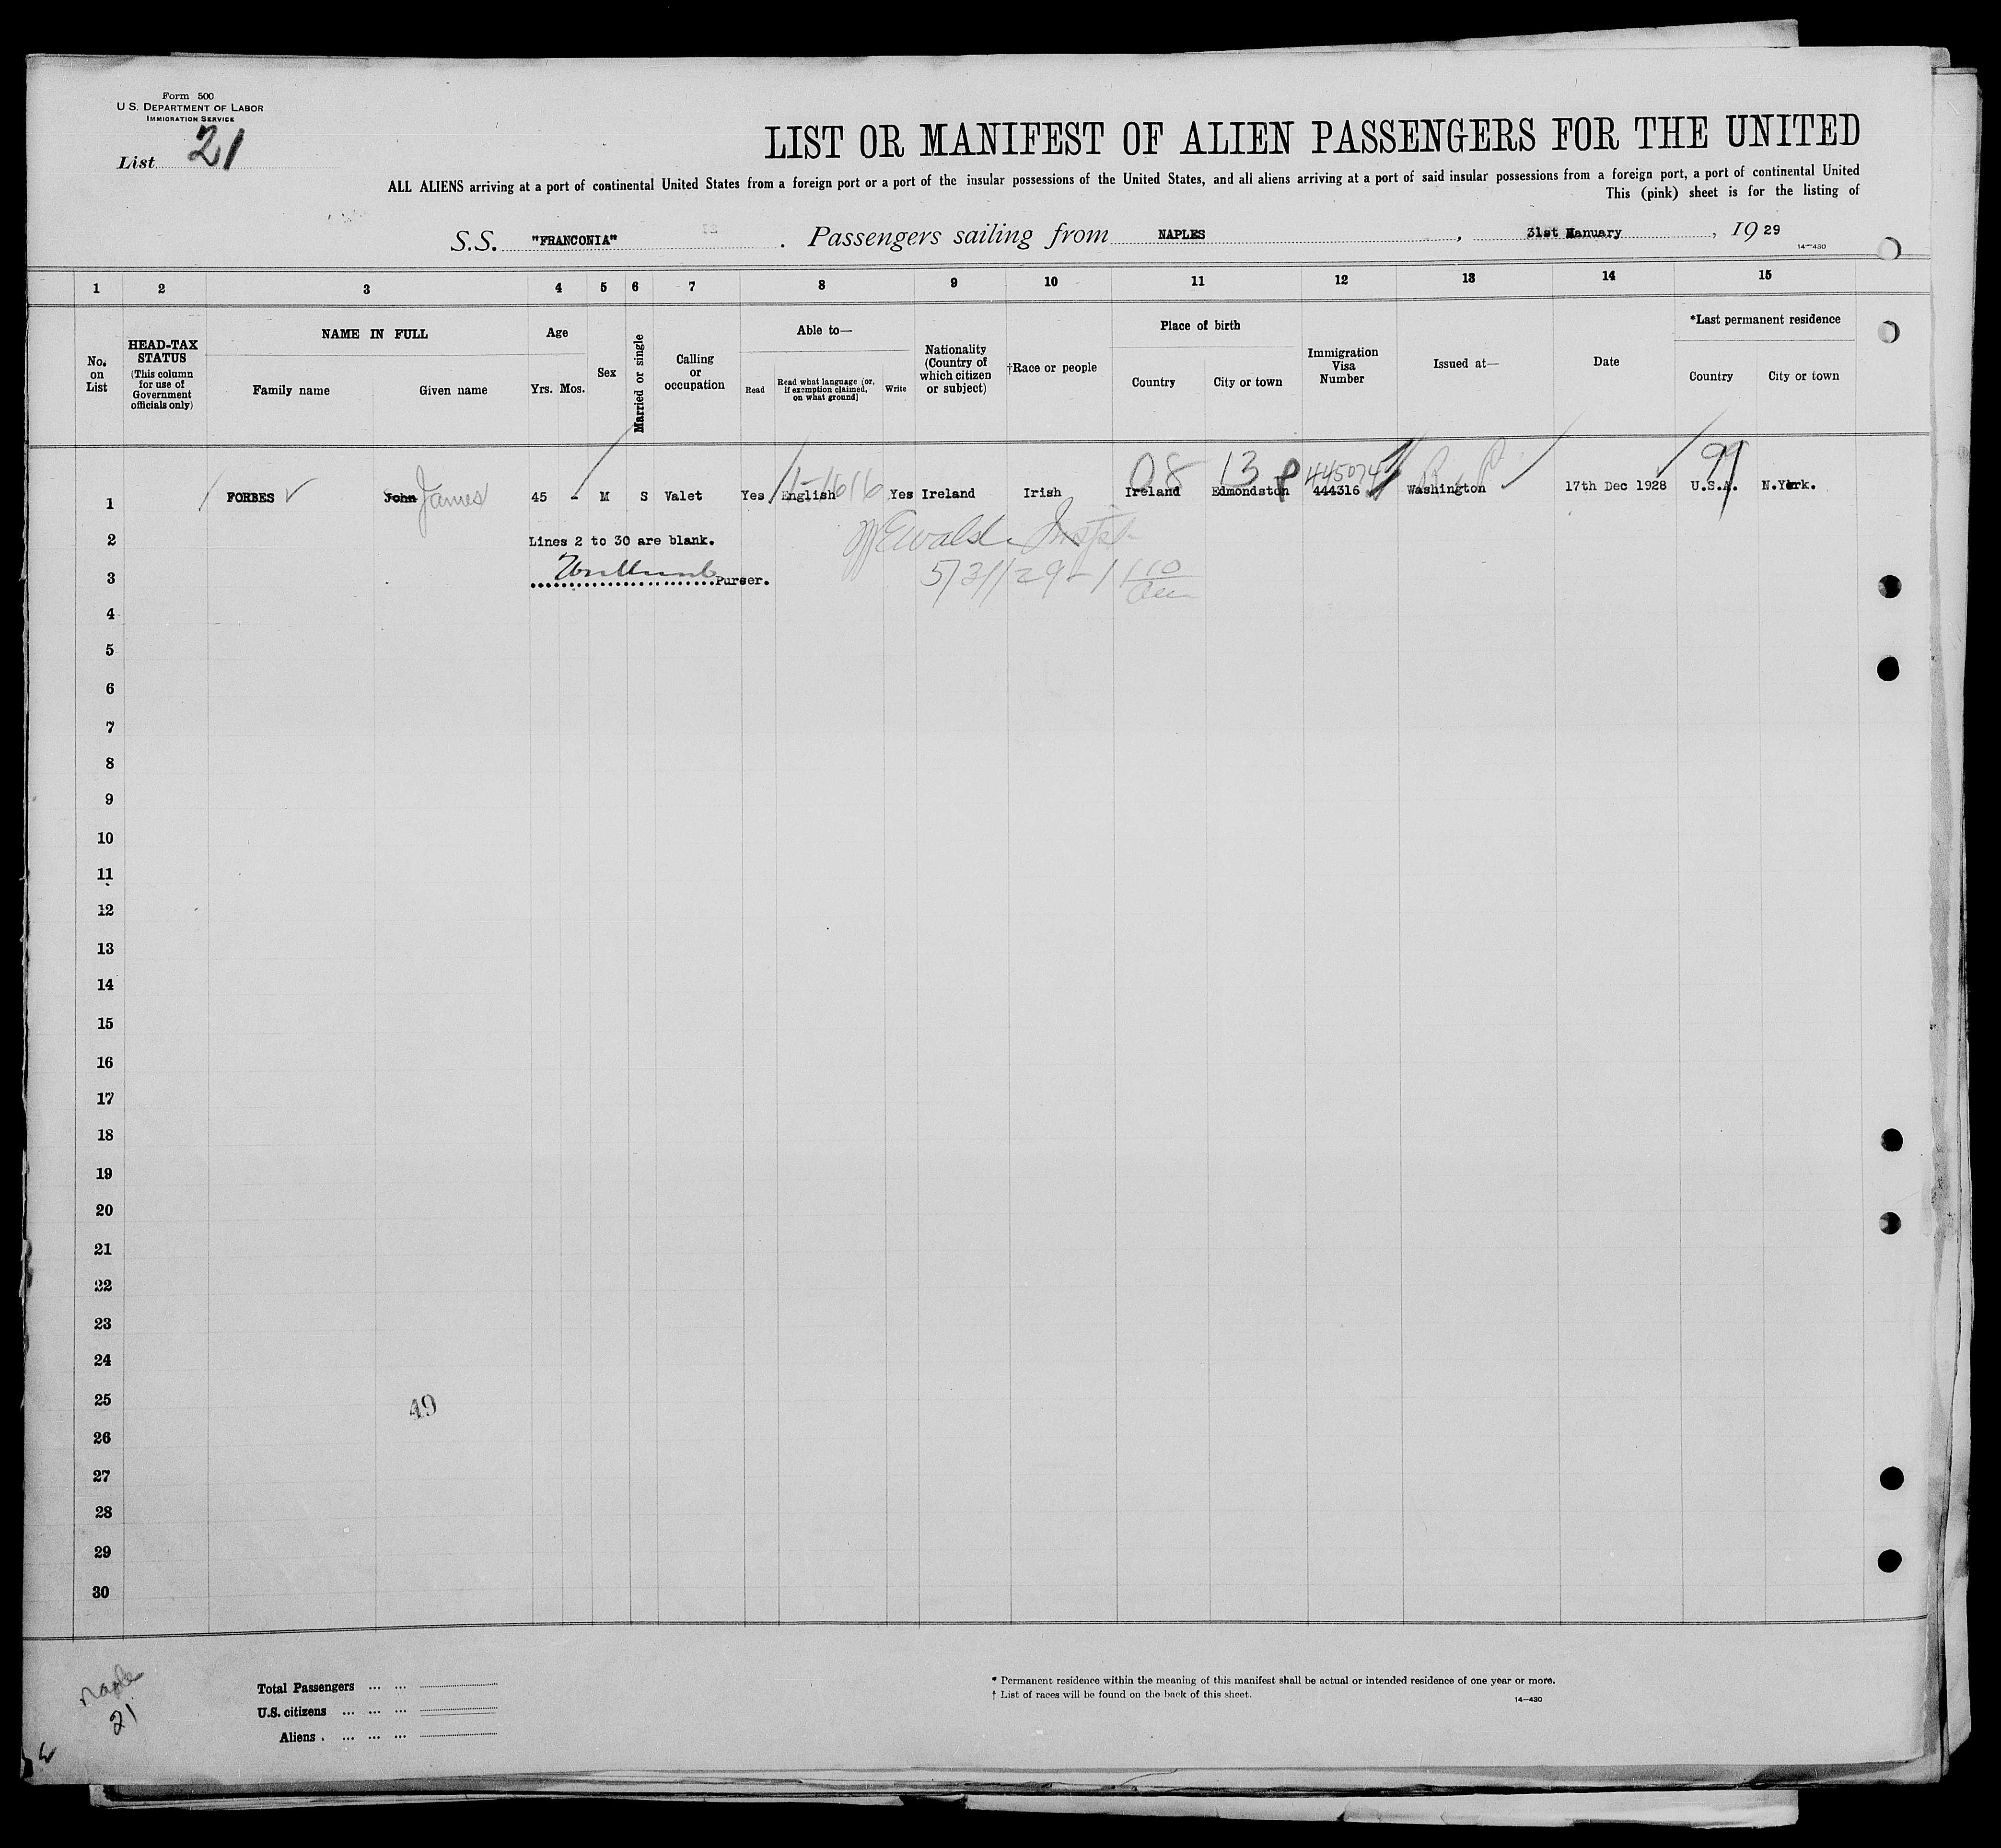 Form 500
U S. DEPARTMENT OF LABOR
IMMIGRATION SERVICE
List 21
LIST OR MANIFEST OF ALIEN PASSENGERS FOR THE UNITED
ALL ALIENS arriving at a port of continental United States from a foreign port or a port of the insular possessions of the United States, and all aliens arriving at a port of said insular possessions from a foreign port, a port of continental United
This (pink) sheet is for the listing of
S.S. "FRANCONIA" . Passengers sailing from NAPLES , 31st January , 19 29
14—430
1 2 3 4 5 6 7 8 9 10 11 12 13 14 15
No. on List
HEAD-TAX STATUS (This column for use of Government officials only)
NAME IN FULL
Family name Given name
Age
Yrs. Mos.
Sex
Married or single
Calling or occupation
Able to—
Read
Read what language (or, if exemption claimed, on what ground)
Write
Nationality (Country of which citizen or subject)
†Race or people
Place of birth
Country City or town
Immigration Visa Number
Issued at—
Date
*Last permanent residence
Country City or town
08 13 P 445074 99
1 FORBES ✓ John James 45 - M S Valet Yes English Yes Ireland Irish Ireland Edmondston 444316 Washington 17th Dec 1928 U.S.A. N.York.
2 Lines 2 to 30 are blank.
Ewald
3 Purser.
5/31/29
4
5
6
7
8
9
10
11
12
13
14
15
16
17
18
19
20
21
22
23
24
25
49
26
27
28
29
30
21
Total Passengers ... ...
U.S. citizens ... ... ...
Aliens . ... ... ...
* Permanent residence within the meaning of this manifest shall be actual or intended residence of one year or more.
† List of races will be found on the back of this sheet.
14—430